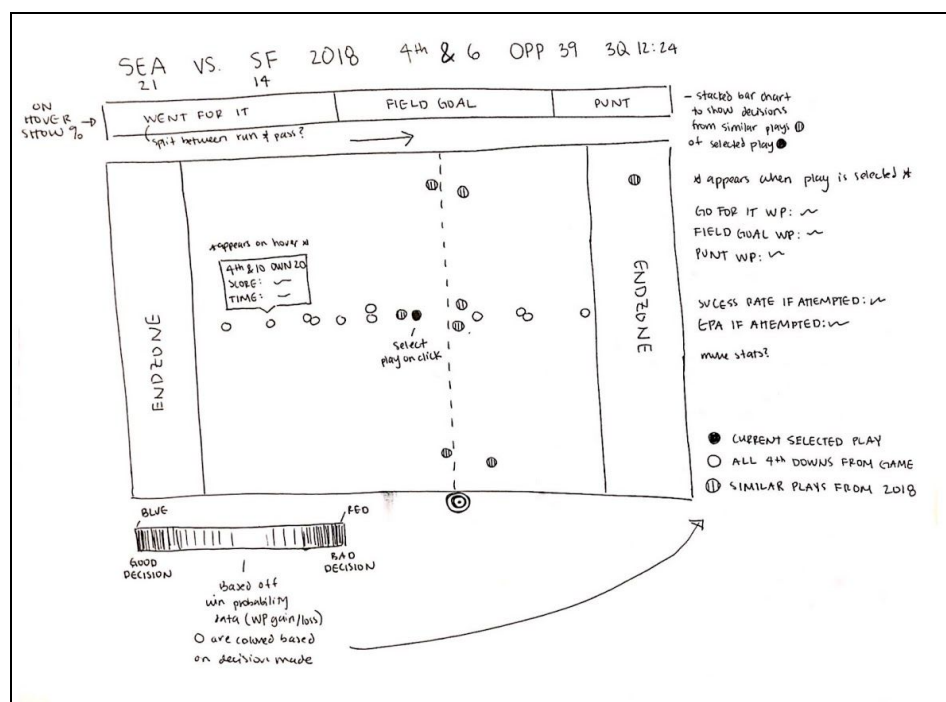 SEA VS. SF 2018 4th & 6 OPP 39 3Q 12:24
21 14
ON
HOVER →
SHOW %
WENT FOR IT
FIELD GOAL
PUNT
(split between run & pass?
- stacked bar chart
to show decisions
from similar plays
of selected play
* appears when play is selected *
GO FOR IT WP:
FIELD GOAL WP:
PUNT WP:
SUCESS RATE IF ATTEMPTED:
EPA IF ATTEMPTED:
more stats?
*appears on hover*
4th & 10 OWN 20
SCORE:
TIME:
ENDZONE
ENDZONE
select
play on click
CURRENT SELECTED PLAY
ALL 4th DOWNS FROM GAME
SIMILAR PLAYS FROM 2018
BLUE
RED
GOOD
DECISION
BAD
DECISION
Based off
win probability
data (WP gain/loss)
O are colored based
on decision made